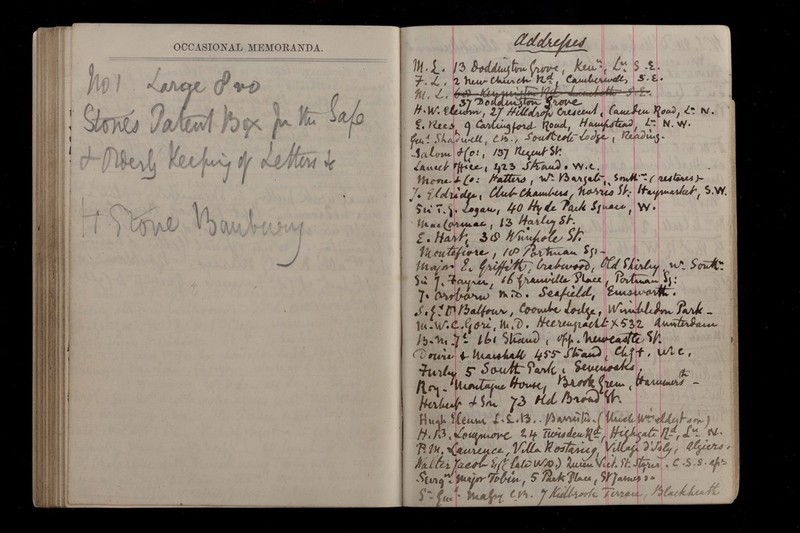 OCCASIONAL MEMORANDA.
No 1 Large 8vo
Stone's Patent Box for the Safe
& Orderly Keeping of Letters &c
H Stone Banbury
Addresses
M. L. 13 Doddington Grove, Ken^n, L^n S.E.
F. L. 2 New Church R^d, Camberwell, S.E.
M. L.
37 Doddington Grove
H. W. 27 Hilldrop Crescent, Camden Road, L^n N.
E. Rees, 9 Carlingford Road, Hampstead, L^n N.W.
Gen^l Shadwell, C.B., Southcote Lodge, Reading.
Salom & Co:, 137 Regent St.
Lancet Office, 423 Strand. W.C.
& Co: Hatters, W^n Bargate, South^n (restorers)
J. Eldridge, Club Chambers, Norris St. Haymarket, S.W.
Sir T. G. Logan, 40 Hyde Park Square, W.
MacCormac, 13 Harley St.
E. Hart, 38 Wimpole St.
Montefiore, 18 Portman Sq:
Major E. Griffith, Crabwood, Old Shirley, n^r South^n
Sir J. Fayrer, 16 Granville Place, Portman Sq:
J. Osborn M.D. Seafield, Emsworth.
Balfour, Coombe Lodge, Wimbledon Park
M.W.C. Gori, M.D. Heerengracht X 532 Amsterdam
161 Strand, opp. Newcastle St.
Dowie & Marshall 455 Strand, Ch: +, W.C.
Furley 5 South Park, Sevenoaks.
Roy. Montague House, Brook Green, Hammers^th
Herbert & Son 73 Old Broad St.
Hugh L.L.B. Barrister (Uncle W^m eldest son)
H. B. Longmore 24 Twisden R^d, Highgate R^d, L^n N.
Laurence, Villa Village d'Isly, Algiers.
Walter Jacob Esq (late W.O.) Queen Vict. St. C.S.S.
Surg^n Major Tobin, 5 Park Place, St James's
7 Kidbrook Terrace, Blackheath